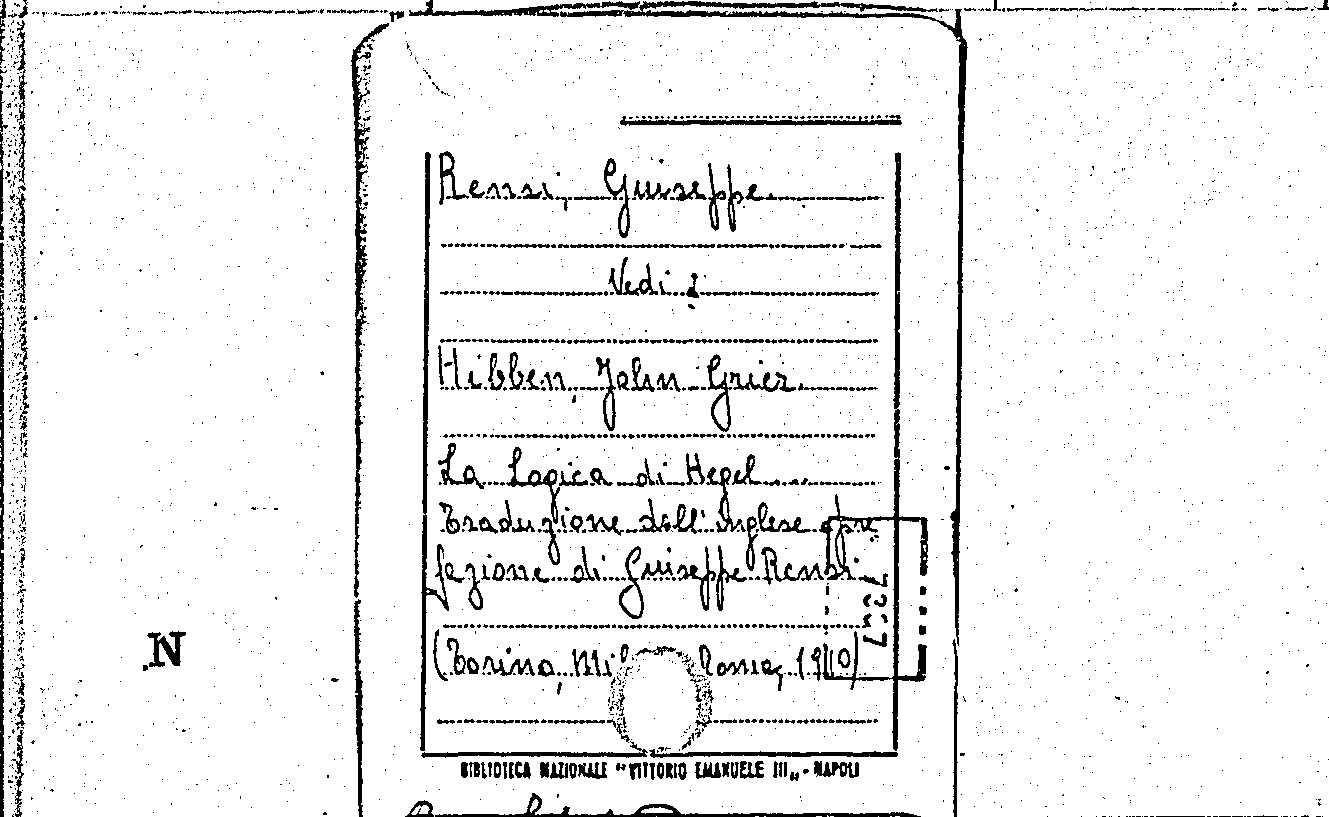 Rensi, Giuseppe.
Vedi :
Hibben, John Grier.
La Logica di Hegel....
Traduzione dall'inglese e pre
fazione di Giuseppe Rensi.
(Torino, Roma, 1910)
N
BIBLIOTECA NAZIONALE "VITTORIO EMANUELE III" - NAPOLI